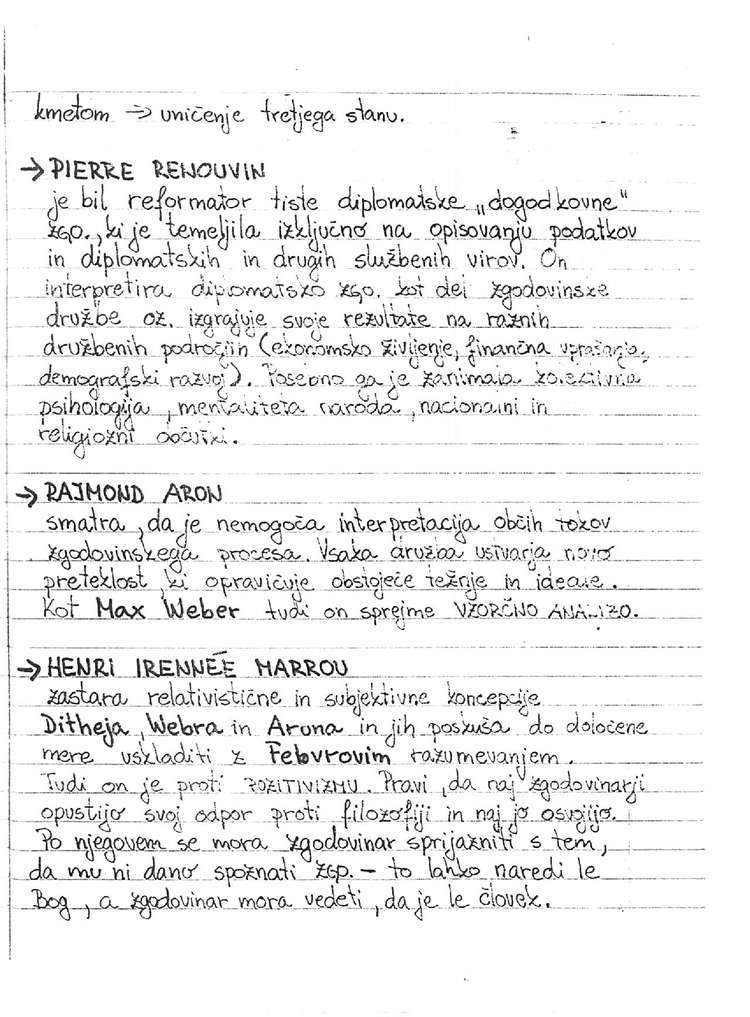 kmetom → uničenje tretjega stanu.
→ PIERRE RENOUVIN
je bil reformator tiste diplomatske „dogodkovne"
zgo., ki je temeljila izključno na opisovanju podatkov
in diplomatskih in drugih službenih virov. On
interpretira diplomatsko zgo. kot del zgodovinske
družbe oz. izgrajuje svoje rezultate na raznih
družbenih področjih (ekonomsko življenje, finančna vprašanja,
demografski razvoj). Posebno ga je zanimala kolektivna
psihologija, mentaliteta naroda, nacionalni in
religiozni občutki.
→ RAJMOND ARON
smatra, da je nemogoča interpretacija občih tokov
zgodovinskega procesa. Vsaka družba ustvarja novo
preteklost, ki opravičuje obstoječe težnje in ideale.
Kot Max Weber tudi on sprejme VZORČNO ANALIZO.
→ HENRI IRENNÉE MARROU
zastara relativistične in subjektivne koncepcije
Ditheja, Webra in Arona in jih poskuša do določene
mere uskladiti z Febvrovim razumevanjem.
Tudi on je proti POZITIVIZMU. Pravi, da naj zgodovinarji
opustijo svoj odpor proti filozofiji in naj jo osvojijo.
Po njegovem se mora zgodovinar sprijazniti s tem,
da mu ni dano spoznati zgo. – to lahko naredi le
Bog, a zgodovinar mora vedeti, da je le človek.